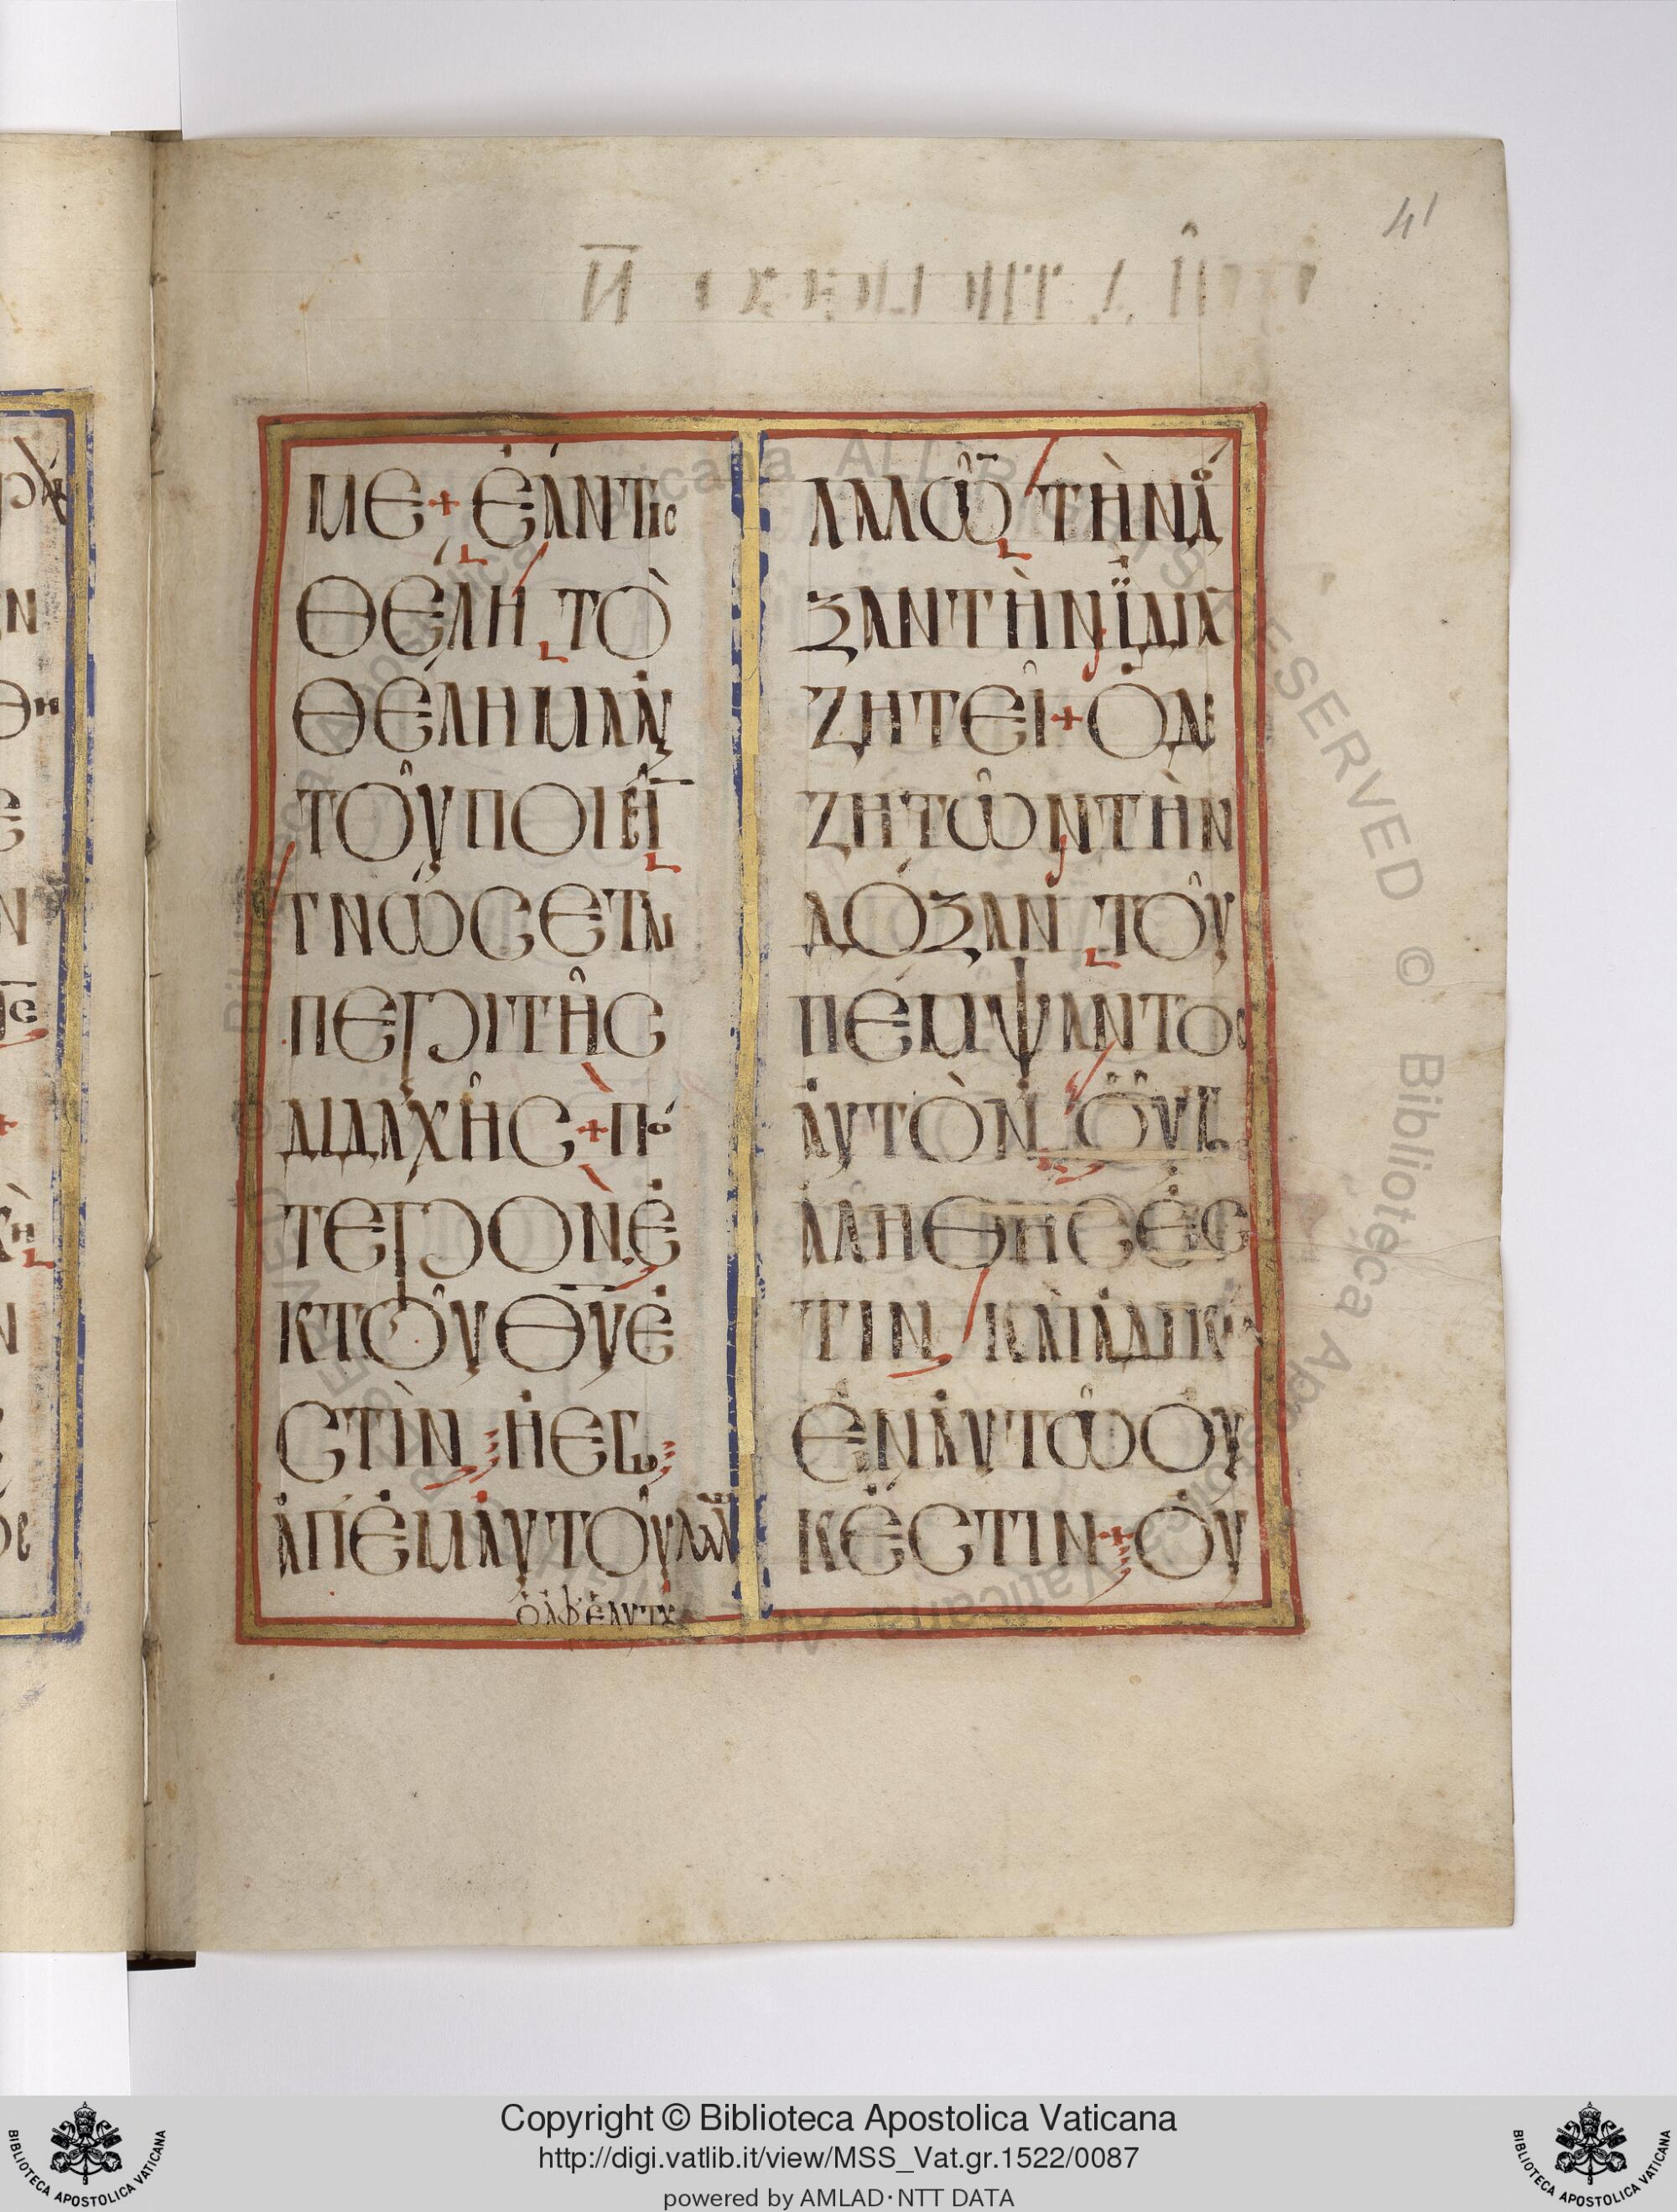 41
ΜΕ + ἘΆΝΤΙς
ΘΈΛΗ ΤῸ
ΘΈΛΗΜΑἈΥ
ΤΟΥ͂ΠΟΙΕΙ͂
ΓΝΏϹΕΤΑΙ
ΠΕΡΙΤΗ͂Ϲ
ΔΙΔΑΧΗ͂Ϲ + ΠΌ
ΤΕΡΟΝἘ
ΚΤΟΥ͂ΘΥ̅Ἐ
ϹΤῚΝ ἨΕΓΩ
ἈΠἘΜΑΥΤΟΥ͂ΛΑΛΩ͂
ὉἈΦἘΑΥΤΟΥ
ΛΑΛΩ͂ ΤῊΝΔΌ
ΞΑΝΤῊΝἸΔΊΑ̅
ΖΗΤΕΙ͂ + ὉΔΕ
ΖΗΤΩ͂ΝΤῊΝ
ΔΌΞΑΝ ΤΟΥ͂
ΠΈΜΨΑΝΤΟϹ
ἈΥΤῸΝ ΟὟΤΟϹ
ἈΛΗΘΗϹἘϹ
ΤΙΝ ΚΑῚἈΔΙΚΊΑ
ἘΝἈΥΤΩ͂ΟΥ̓
ΚἜϹΤΙΝ + ΟΥ̓
Copyright © Biblioteca Apostolica Vaticana
http://digi.vatlib.it/view/MSS_Vat.gr.1522/0087
powered by AMLAD·NTT DATA
BIBLIOTECA APOSTOLICA VATICANA
BIBLIOTECA APOSTOLICA VATICANA